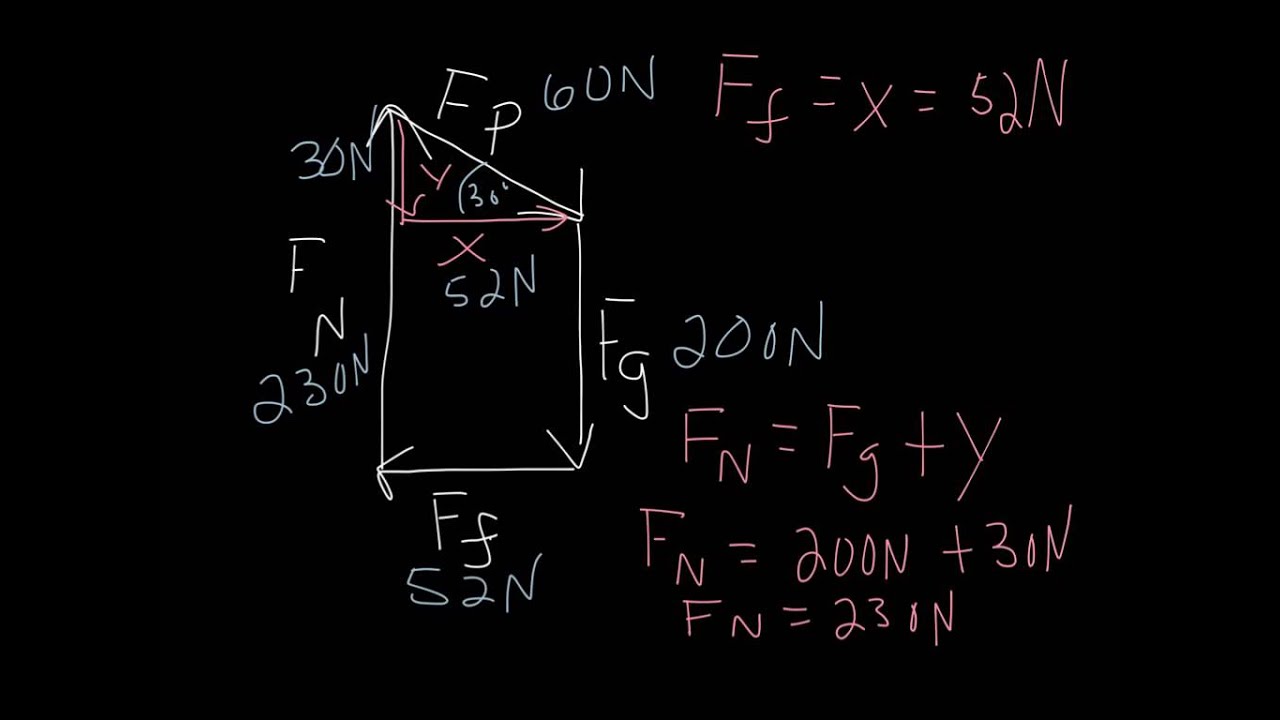 F_p 60N
F_f = x = 52N
30N
y
30°
x
52N
F_N
230N
F_g 200N
F_N = F_g + y
F_N = 200N + 30N
F_N = 230N
F_f
52N